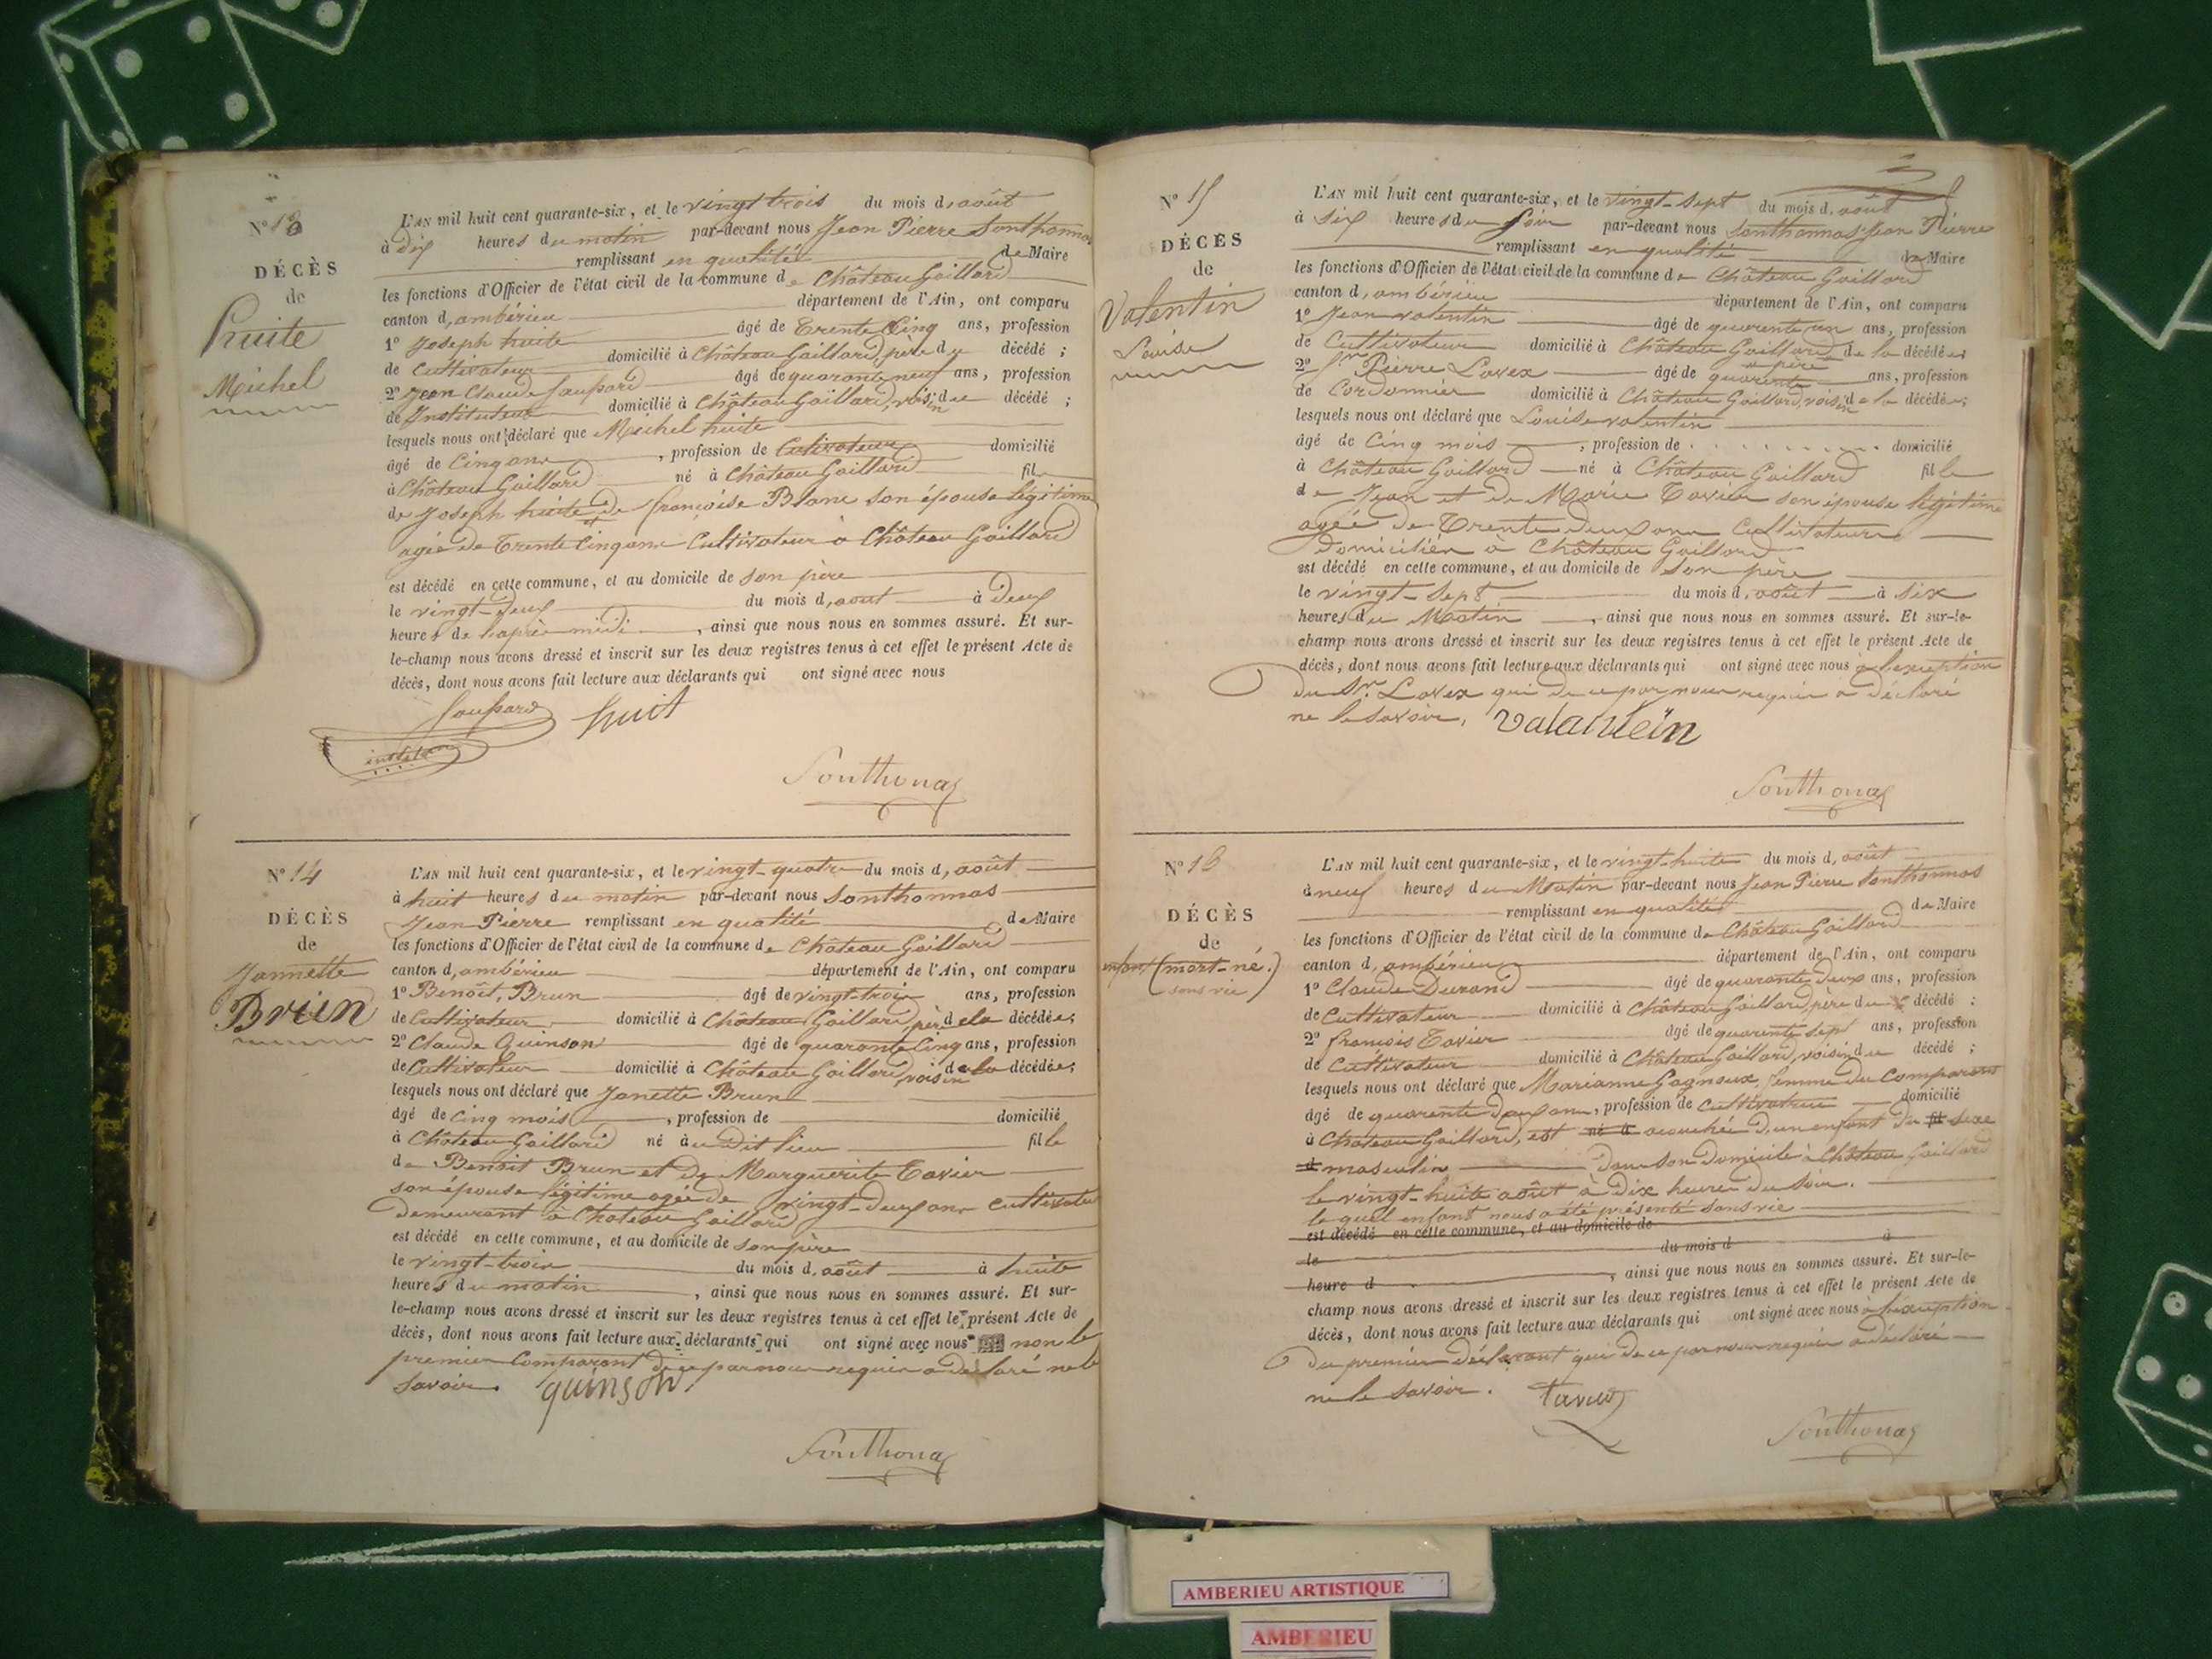 N° 13
DÉCÈS
de
huite
Michel
L'AN mil huit cent quarante-six, et le vingt trois du mois d'août
à dix heures du matin par-devant nous Jean Pierre Sonthonnas
remplissant en qualité de Maire
les fonctions d'Officier de l'état civil de la commune de Château Gaillard
canton d'ambérieu département de l'Ain, ont comparu
1° Joseph huite âgé de Trente Cinq ans, profession
de Cultivateur domicilié à Château Gaillard, père du décédé ;
2° Jean Claude âgé de quarante neuf ans, profession
de Instituteur domicilié à Château Gaillard, voisin du décédé ;
lesquels nous ont déclaré que Michel huite
âgé de Cinq ans, profession de Cultivateur domicilié
à Château Gaillard né à Château Gaillard fils
de Joseph huite et de françoise Blanc son épouse légitime
agée de Trente Cinq ans Cultivateur à Château Gaillard
est décédé en cette commune, et au domicile de son père
le vingt-deux du mois d'aout à deux
heures de l'après midi, ainsi que nous nous en sommes assuré. Et sur-
le-champ nous avons dressé et inscrit sur les deux registres tenus à cet effet le présent Acte de
décès, dont nous avons fait lecture aux déclarants qui ont signé avec nous
huit
Sonthonas
N° 14
DÉCÈS
de
Jannette
Brun
L'AN mil huit cent quarante-six, et le vingt-quatre du mois d'août
à huit heures du matin par-devant nous Sonthonnas
Jean Pierre remplissant en qualité de Maire
les fonctions d'Officier de l'état civil de la commune de Château Gaillard
canton d'ambérieu département de l'Ain, ont comparu
1° Benoît, Brun âgé de vingt-trois ans, profession
de Cultivateur domicilié à Château Gaillard, père de la décédée ;
2° Claude Quinson âgé de quarante Cinq ans, profession
de Cultivateur domicilié à Château Gaillard, voisin de la décédée ;
lesquels nous ont déclaré que Janette Brun
âgé de Cinq mois, profession de domicilié
à Château Gaillard né àu dit lieu fille
de Benoit Brun et de Marguerite Tavier
son épouse légitime agée de vingt-deux ans cultivateur
demeurant à Château Gaillard
est décédé en cette commune, et au domicile de son père
le vingt-trois du mois d'août à huite
heures du matin, ainsi que nous nous en sommes assuré. Et sur-
le-champ nous avons dressé et inscrit sur les deux registres tenus à cet effet le présent Acte de
décès, dont nous avons fait lecture aux déclarants qui ont signé avec nous non le
premier Comparant de ce par nous requis a déclaré ne le
savoir. quinson
Sonthonas
N° 15
DÉCÈS
de
Valentin
Louise
L'AN mil huit cent quarante-six, et le vingt-sept du mois d'août
à six heures du soir par-devant nous Sonthonnas Jean Pierre
remplissant en qualité de Maire
les fonctions d'Officier de l'état civil de la commune de Château Gaillard
canton d'ambérieu département de l'Ain, ont comparu
1° Jean valentin âgé de quarente un ans, profession
de Cultivateur domicilié à Château Gaillard père de la décédée ;
2° Sr Pierre Lavex âgé de quarente ans, profession
de Cordonnier domicilié à Château Gaillard, voisin de la décédée ;
lesquels nous ont déclaré que Louise valentin
âgé de Cinq mois, profession de domicilié
à Château Gaillard né à Château Gaillard fille
de Jean et de Marie Tavier son épouse légitime
agée de Trente deux ans Cultivateurs
domiciliés à Château Gaillard
est décédé en cette commune, et au domicile de son père
le vingt-sept du mois d'août à six
heures du Matin, ainsi que nous nous en sommes assuré. Et sur-le-
champ nous avons dressé et inscrit sur les deux registres tenus à cet effet le présent Acte de
décès, dont nous avons fait lecture aux déclarants qui ont signé avec nous à l'exception
du Sr. Lavex qui de ce par nous requis a déclaré
ne le savoir.
Sonthonas
N° 16
DÉCÈS
de
enfant (mort-né.)
sans vie
L'AN mil huit cent quarante-six, et le vingt-huite du mois d'août
à neuf heures du Matin par-devant nous Jean Pierre Sonthonnas
remplissant en qualité de Maire
les fonctions d'Officier de l'état civil de la commune de Château Gaillard
canton d'ambérieu département de l'Ain, ont comparu
1° Claude Durand âgé de quarante deux ans, profession
de Cultivateur domicilié à Château Gaillard, père du décédé ;
2° francois Tavier âgé de quarente sept ans, profession
de Cultivateur domicilié à Château Gaillard, voisin du décédé ;
lesquels nous ont déclaré que Marianne Gagneux femme du Comparant
âgé de quarente deux ans, profession de Cultivatrice domicilié
à Château Gaillard, est né à accouchée d'un enfant du fil sexe
d masculin dans son domicile à Château Gaillard
le vingt-huite août à dix heures du soir.
le quel enfant nous a été présenté sans vie
est décédé en cette commune, et au domicile de
le du mois d à
heure d, ainsi que nous nous en sommes assuré. Et sur-le-
champ nous avons dressé et inscrit sur les deux registres tenus à cet effet le présent Acte de
décès, dont nous avons fait lecture aux déclarants qui ont signé avec nous à l'éxception
du premier déclarant qui de ce par nous requis a déclaré
ne le savoir.
Sonthonas
AMBERIEU ARTISTIQUE
AMBERIEU